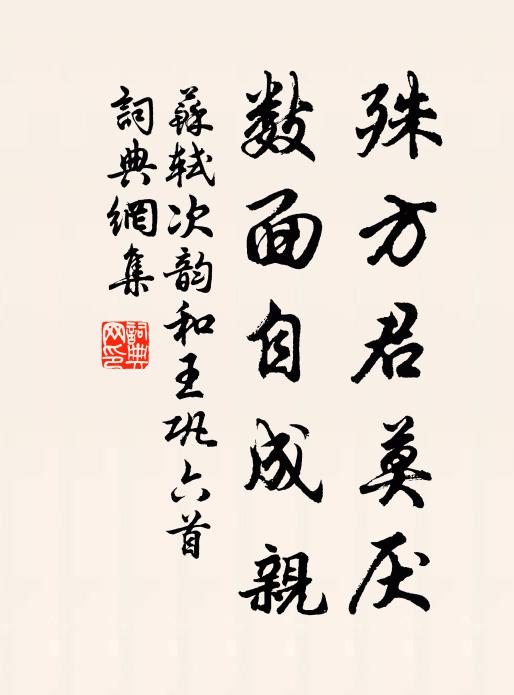 殊方君莫厌
数面自成親
蘇軾次韵和王巩六首
詞典網集
詞典网印